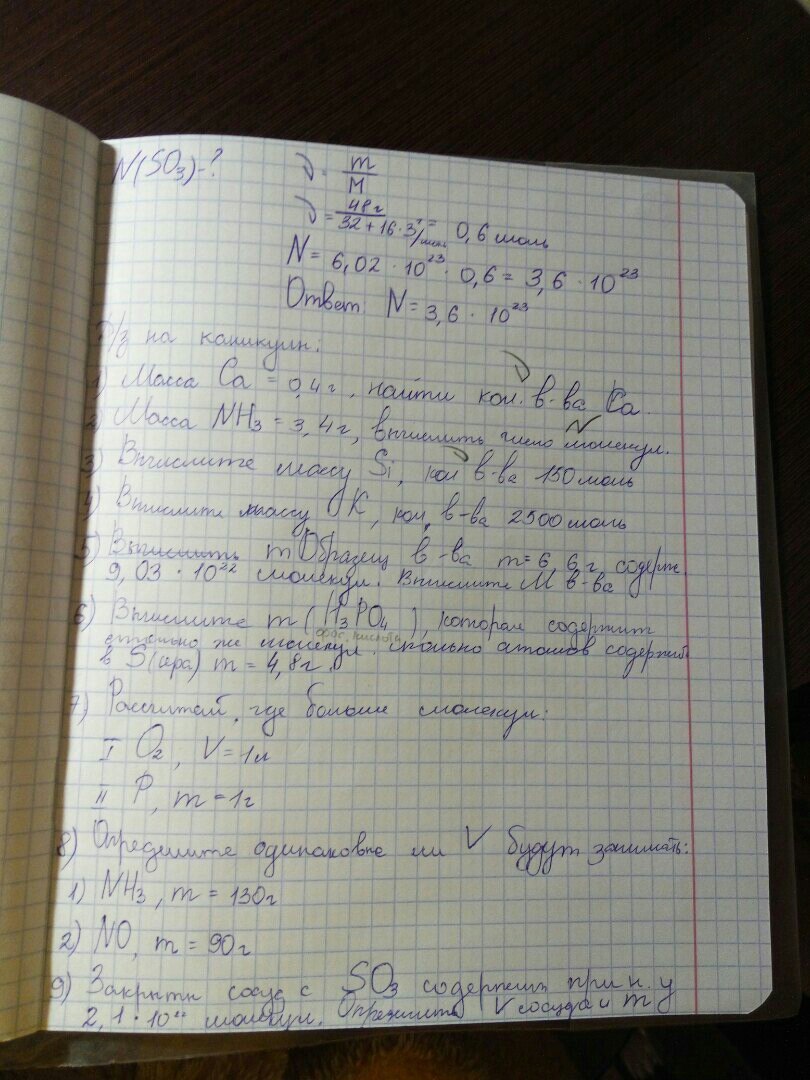 N(SO₃)-?
ν = m/M
ν = 48г/32+16·3 г/моль = 0,6 моль
N = 6,02 · 10²³ · 0,6 = 3,6 · 10²³
Ответ N = 3,6 · 10²³
Д/з на каникулы:
1) Масса Ca = 0,4 г, найти кол. в-ва Ca. ν
2) Масса NH₃ = 3,4 г, вычислить число молекул. N
3) Вычислите массу Si, кол в-ва 150 моль ν
4) Вычислите массу K, кол. в-ва 2500 моль
5) Вычислить m Образец в-ва m = 6,6 г, содерж.
9,03 · 10²² молекул. Вычислите M в-ва
6) Вычислите m (H₃PO₄), которая содержит
фос. кислота
столько же молекул. сколько атомов содержит.
в S(сера) m = 4,8 г.
7) Рассчитай, где больше молекул:
I O₂, V = 1л
II P, m = 1г
8) Определите одинаковые ли V будут занимать:
1) NH₃, m = 130г
2) NO, m = 90г
9) Закрыты сосуд с SO₃ содержит при н.у
2,1 · 10²² молекул. Определить V сосуда и m